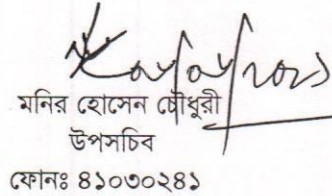 মনির হোসেন চৌধুরী
উপসচিব
ফোনঃ ৪১০৩০২৪১